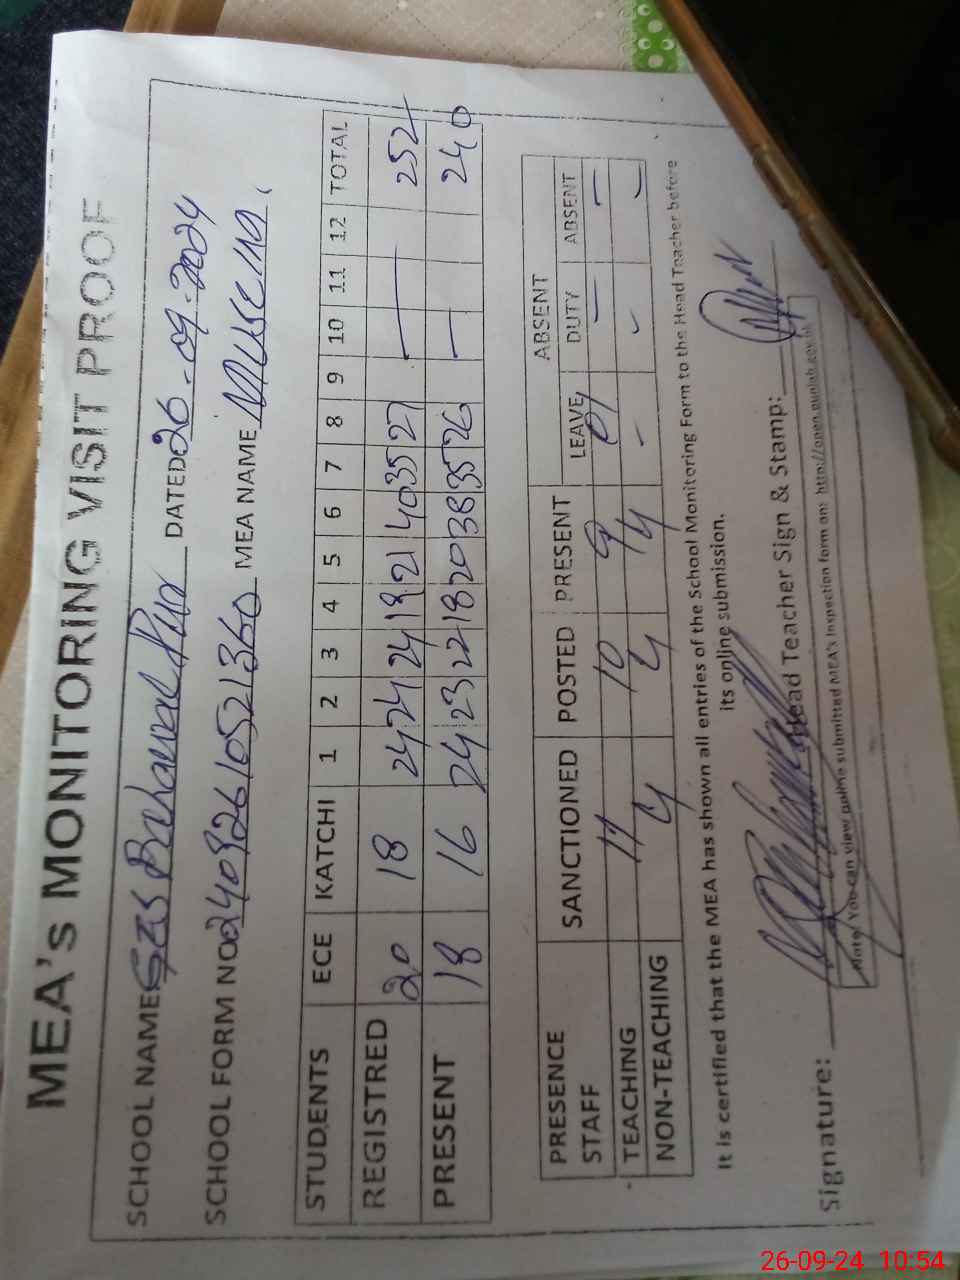 MEA's MONITORING VISIT PROOF
SCHOOL NAME GES DATED 26-09-2024
SCHOOL FORM NO 240926105521360 MEA NAME
STUDENTS ECE KATCHI 1 2 3 4 5 6 7 8 9 10 11 12 TOTAL
REGISTRED 20 18 24 24 24 19 21 40 35 27 — 252
PRESENT 18 16 24 23 22 18 20 38 35 26 — 240
PRESENCE SANCTIONED POSTED PRESENT ABSENT
STAFF LEAVE DUTY ABSENT
TEACHING 11 10 9 01 — —
NON-TEACHING 4 4 4 - - -
It is certified that the MEA has shown all entries of the School Monitoring Form to the Head Teacher before
its online submission.
Signature: Head Teacher Sign & Stamp:
Note: You can view online submitted MEA's Inspection form on: http://open.punjab.gov.pk
26-09-24 10:54